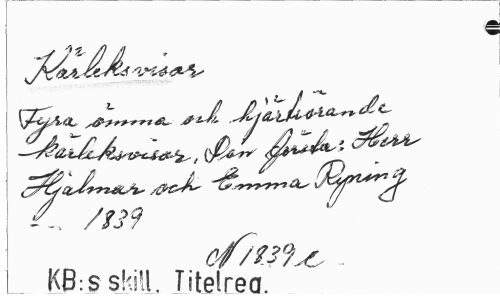 Kärleksvisor
Fyra ömma och hjärtrörande
kärleksvisor. Den första: Herr
Hjalmar och Emma Ryning
--- 1839
N 1839 e
KB:s skill. Titelreg.